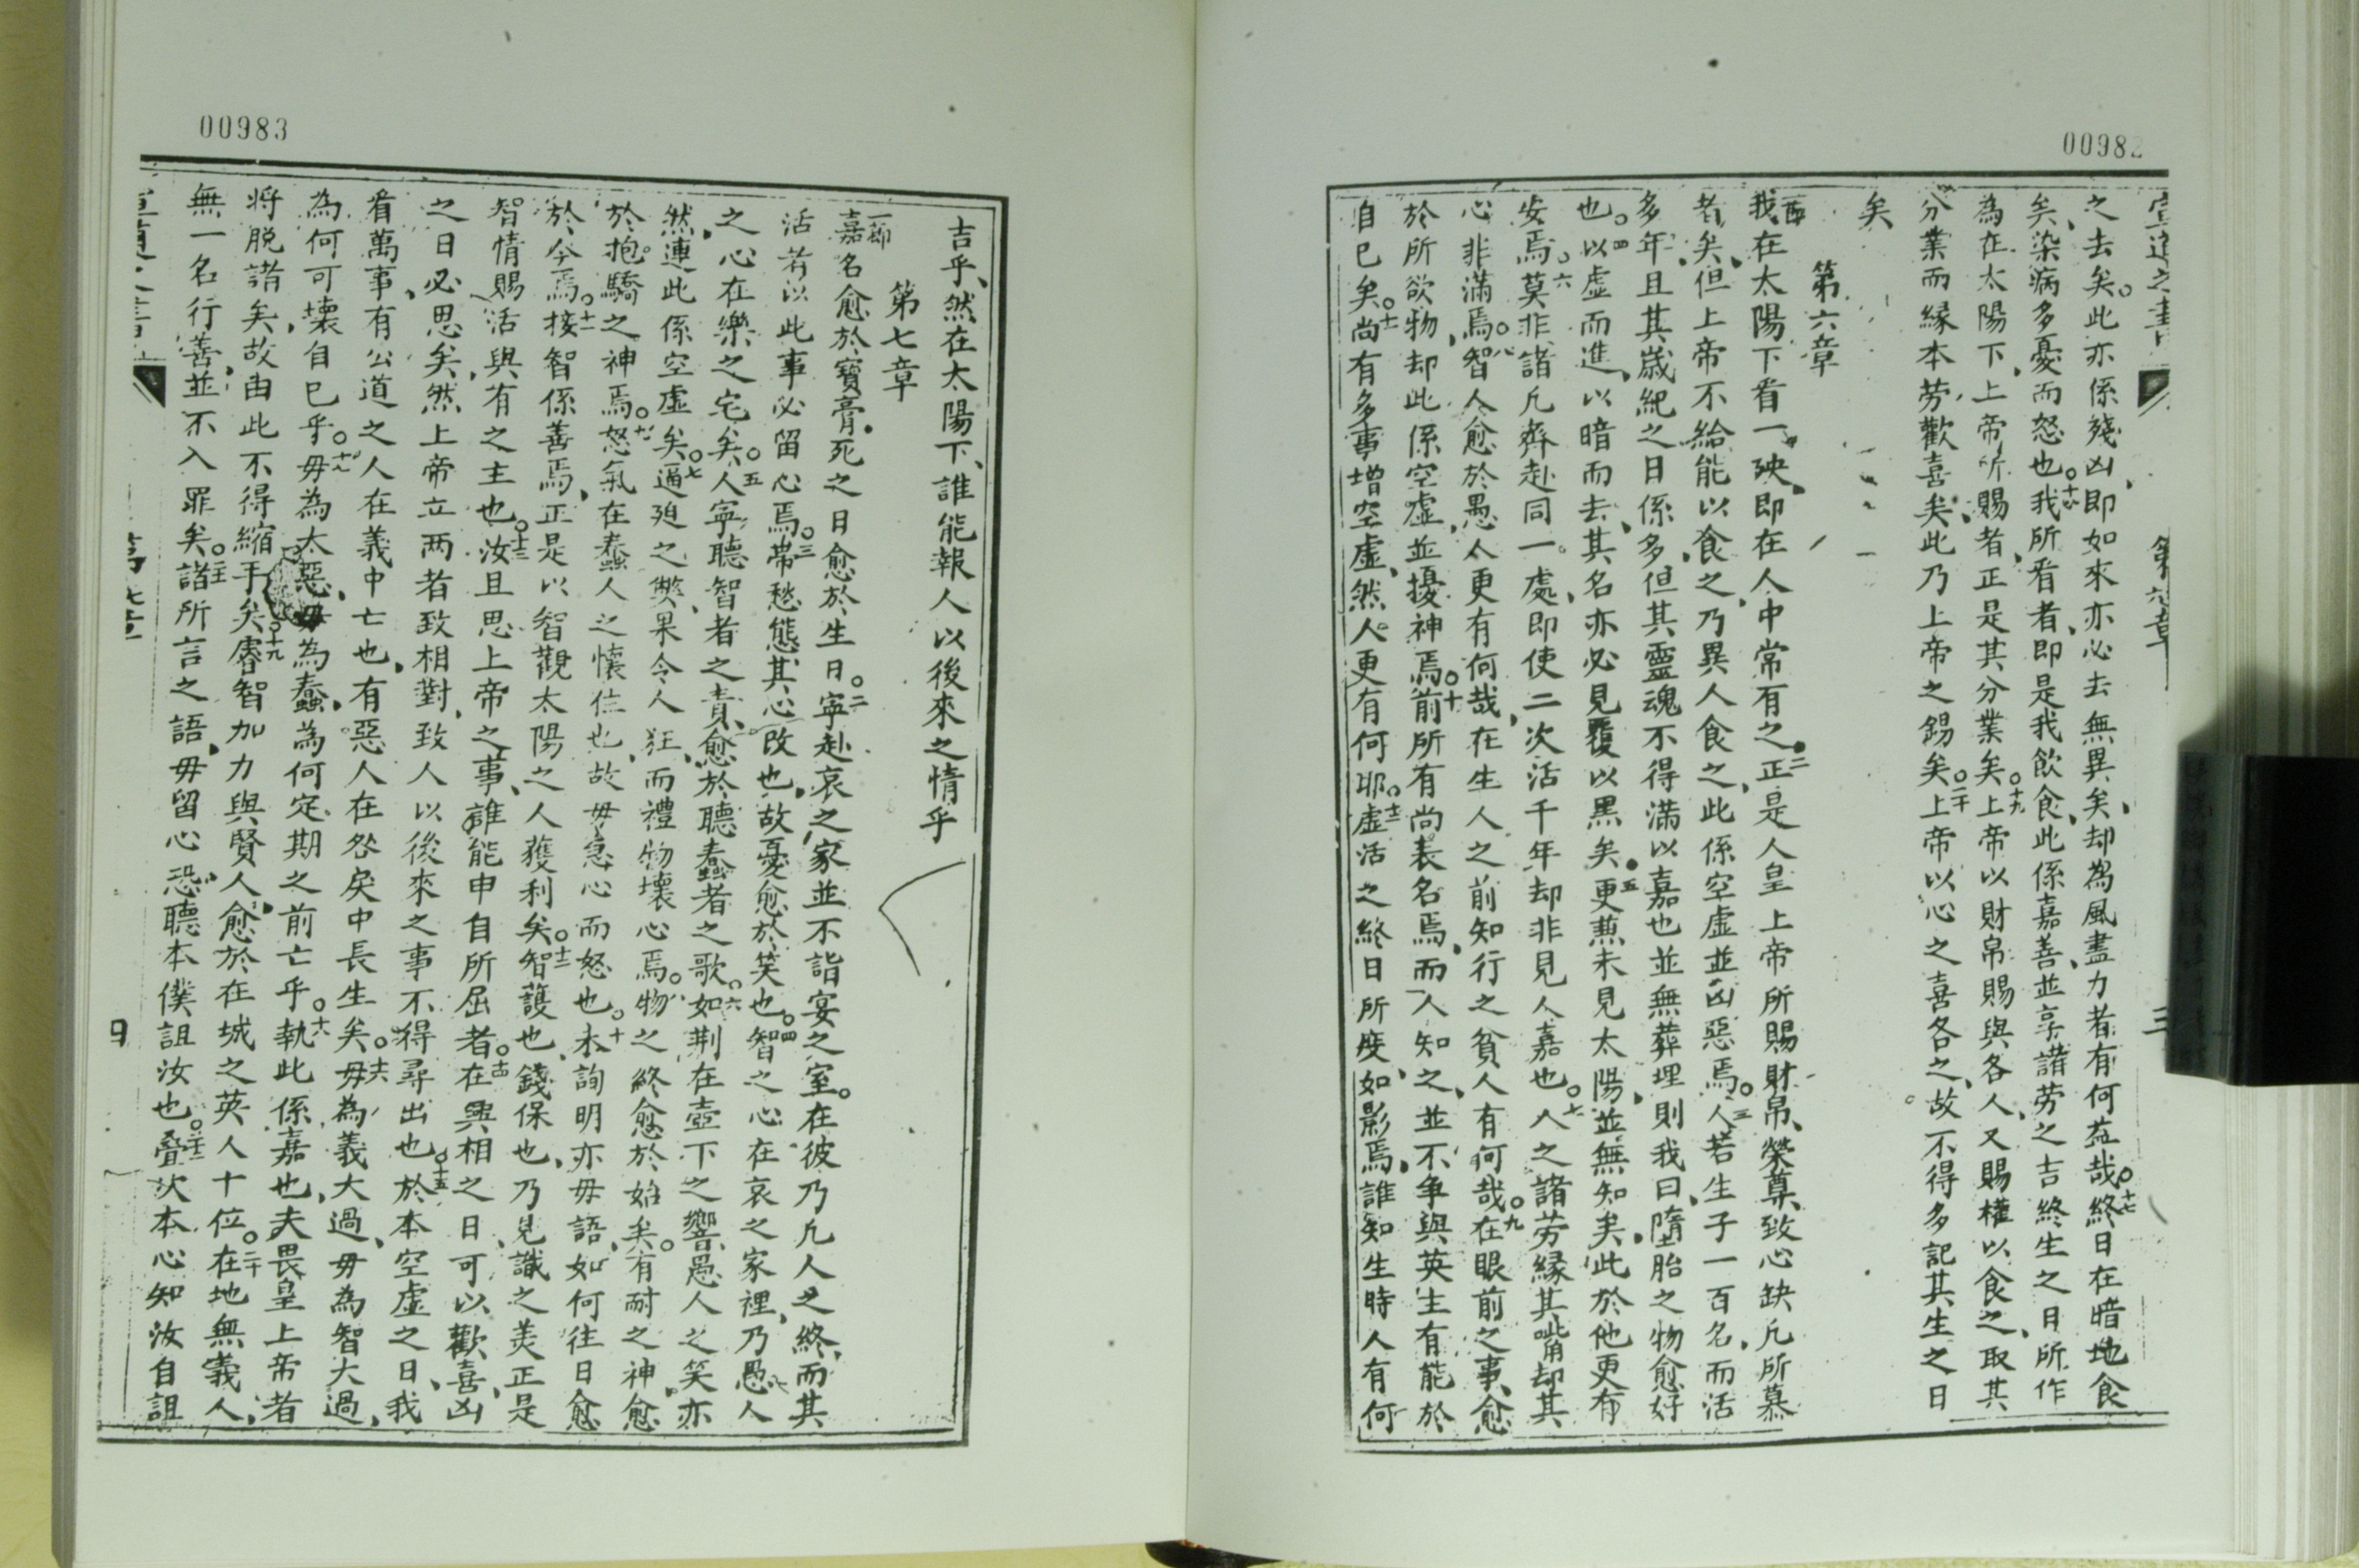 00982
宣道之書 第六章 三
之去矣此亦係殘凶即如來亦必去無異矣却為風盡力者有何益哉十七終日在暗地食
矣染病多憂而怒也十八我所看者即是我飲食此係嘉善並享諸劳之吉終生之日所作
為在太陽下上帝所賜者正是其分業矣十九上帝以財帛賜與各人又賜權以食之取其
分業而緣本劳歡喜矣此乃上帝之錫矣二十上帝以心之喜各之故不得多記其生之日
矣
第六章
我在太陽下看一殃即在人中常有之二正是人皇上帝所賜財帛榮尊致心缺凡所慕
者矣但上帝不給能以食之乃異人食之此係空虛並凶惡焉三人若生子一百名而活
多年且其歲紀之日係多但其靈魂不得滿以嘉也並無葬埋則我曰墮胎之物愈好
也四以虛而進以暗而去其名亦必見覆以黑矣五更蕪未見太陽並無知矣此於他更有
安焉六莫非諸凡齊赴同一處即使二次活千年却非見人嘉也七人之諸劳緣其嘴却其
心非滿焉八智人愈於愚人更有何哉在生人之前知行之貧人有何哉九在眼前之事愈
於所欲物却此係空虛並擾神焉十前所有尚表名焉而人知之並不爭與英生有能於
自已矣十一尚有多事增空虛然人更有何耶十二虛活之終日所度如影焉誰知生時人有何
00983
吉乎然在太陽下誰能報人以後來之情乎
第七章
一節嘉名愈於寶膏死之日愈於生日二寧赴哀之家並不詣宴之室在彼乃凡人之終而其
活者以此事必留心焉三帶愁態其心改也故憂愈於笑也四智之心在哀之家裡乃愚人
之心在樂之宅矣五人寧聽智者之責愈於聽蠢者之歌六如荆在壺下之響愚人之笑亦
然連此係空虛矣七逼廹之弊果令人狂而禮物壞心焉八物之終愈於始矣有耐之神愈
於抱驕之神焉九怒氣在蠢人之懷住也故毋急心而怒也十未詢明亦毋語如何往日愈
於今焉十一接智係善焉正是以智觀太陽之人獲利矣十二智護也錢保也乃見識之美正是
智情賜活與有之主也十三汝且思上帝之事誰能申自所屈者十四在興相之日可以歡喜凶
之日必思矣然上帝立两者致相對致人以後來之事不得尋出也十五於本空虛之日我
看萬事有公道之人在義中亡也有惡人在咎戾中長生矣十六毋為義大過毋為智大過
為何可壞自已乎十七毋為太惡毋為蠢為何定期之前亡乎十八執此係嘉也夫畏皇上帝者
將脱諸矣故由此不得縮手矣十九睿智加力與賢人愈於在城之英人十位二十在地無義人
無一名行善並不入罪矣二十一諸所言之語毋留心恐聽本僕詛汝也二十二叠次本心知汝自詛
第七章